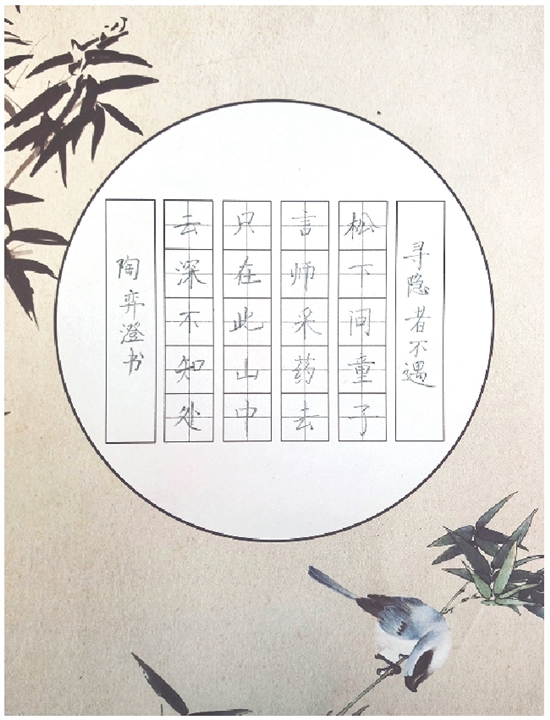 寻隐者不遇
松下问童子
言师采药去
只在此山中
云深不知处
陶弈澄书